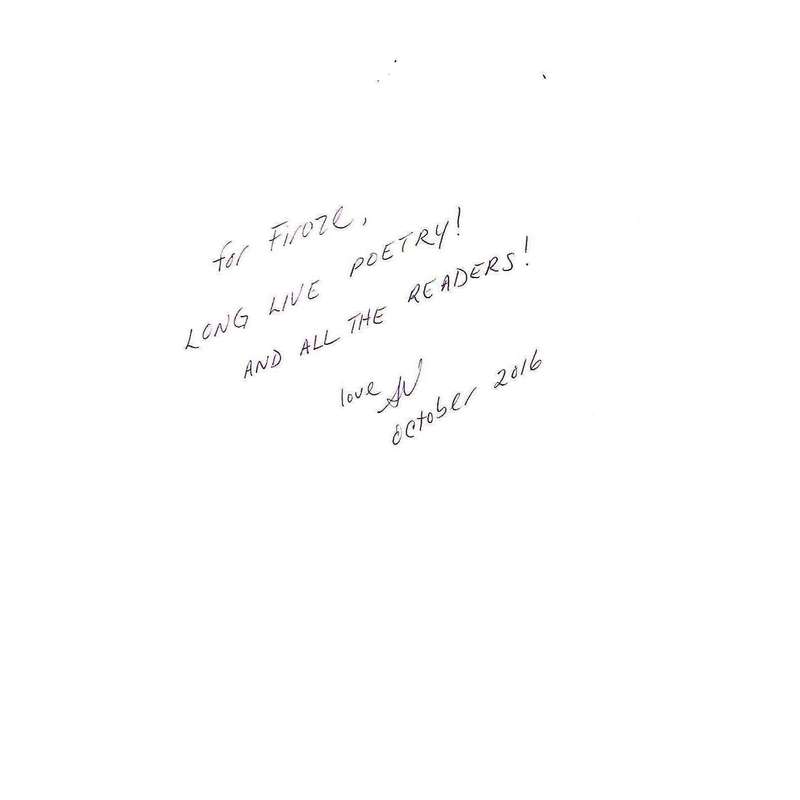 for Firoze,
LONG LIVE POETRY!
AND ALL THE READERS!
love SV
october 2016